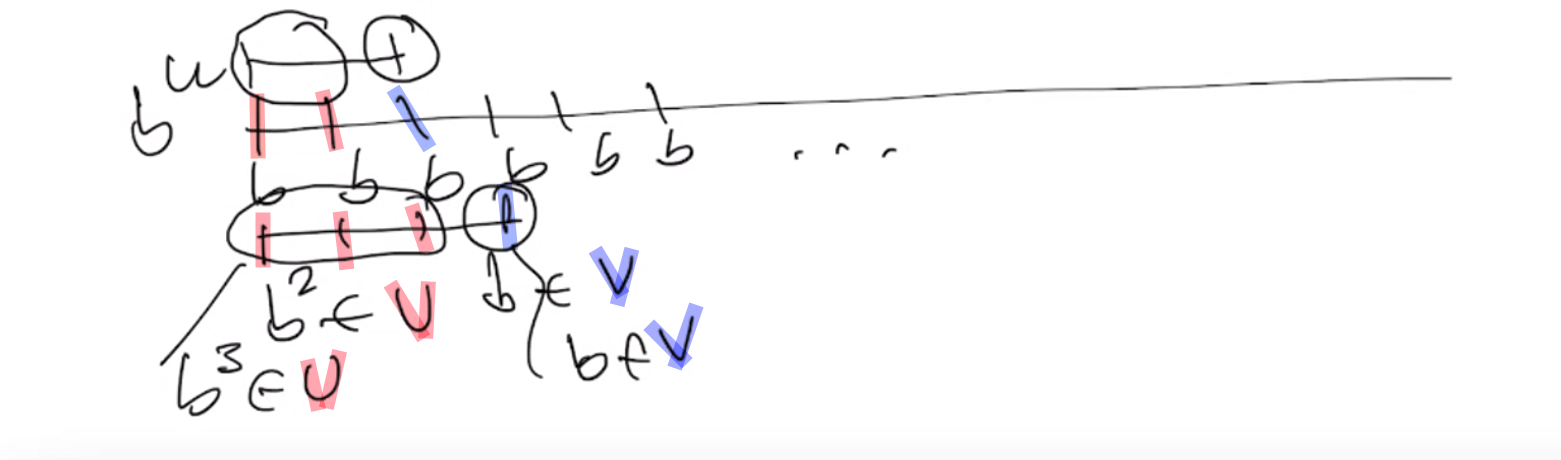 u
b
b b b b b b ...
b
b² ∈ U
∈ V
b³ ∈ U
b ∈ V